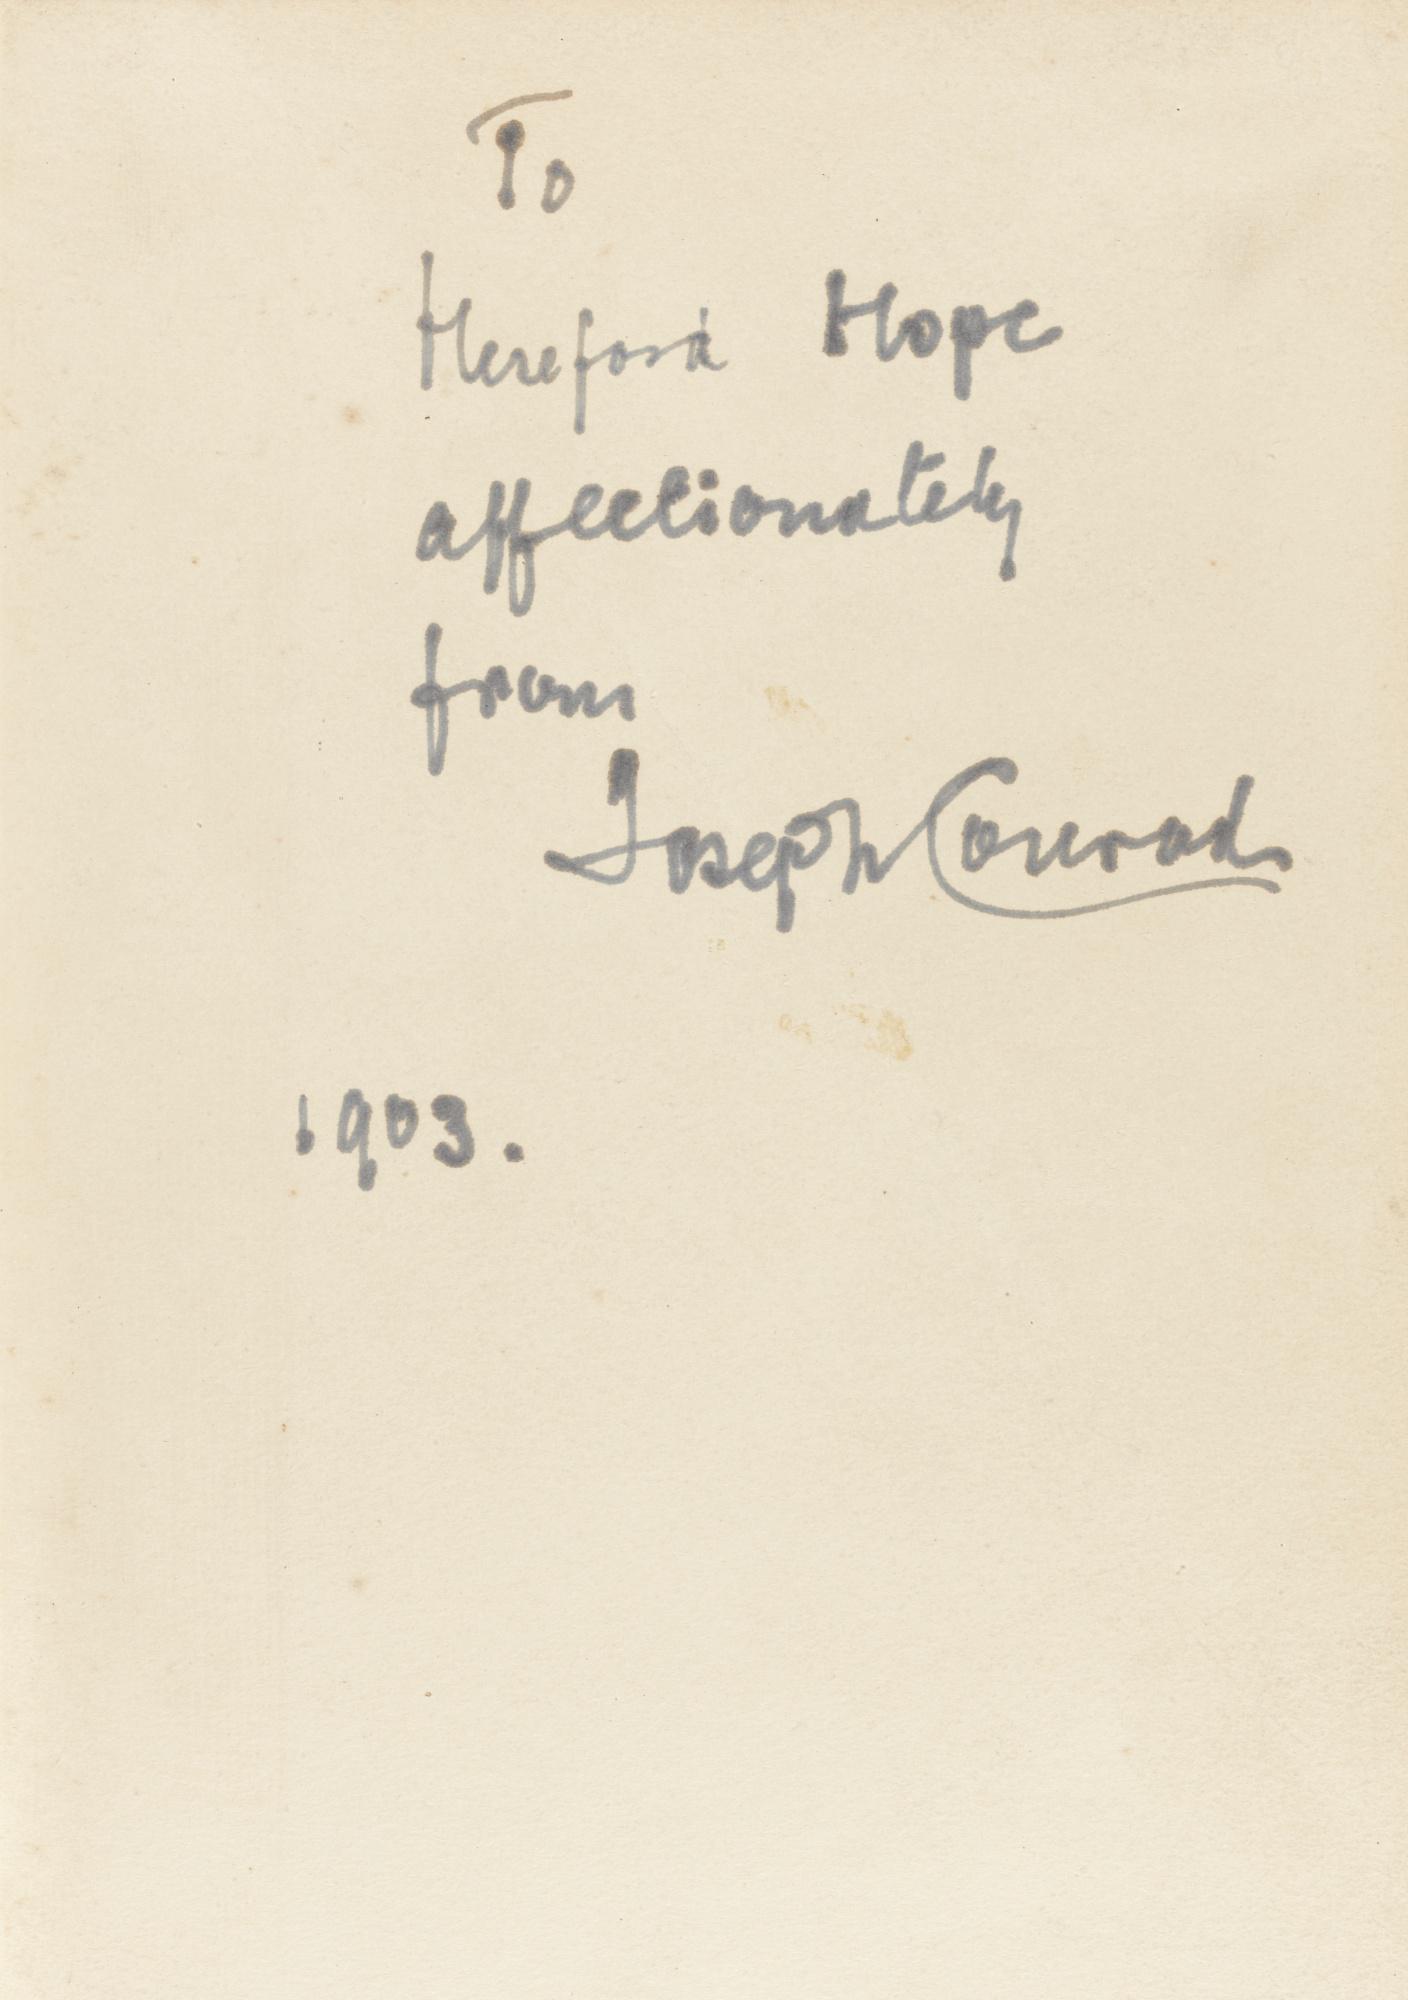 To
Hereford Hope
affectionately
from
Joseph Conrad
1903.